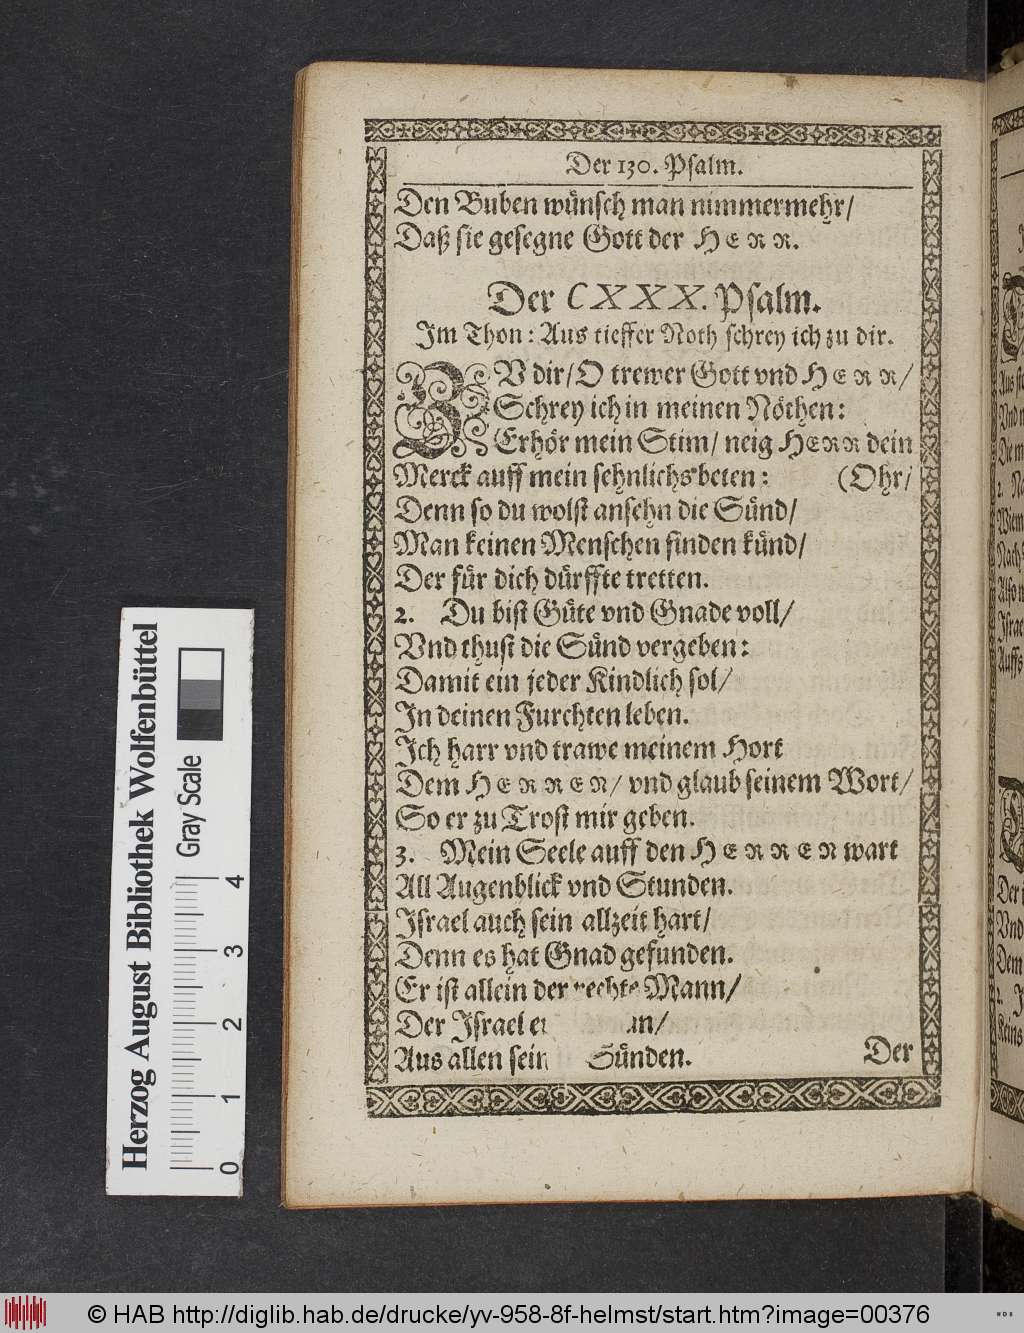 Der 130. Psalm.
Den Buben wünsch man nimmermehr/
Daß sie gesegne Gott der HERR.
Der CXXX. Psalm.
Im Thon: Aus tieffer Noth schrey ich zu dir.
ZV dir/ O trewer Gott vnd HERR/
Schrey ich in meinen Nöthen:
Erhör mein Stim/ neig HERR dein
Merck auff mein sehnlichs beten: (Ohr/
Denn so du wolst ansehn die Sünd/
Man keinen Menschen finden künd/
Der für dich dürffte tretten.
2. Du bist Güte vnd Gnade voll/
Vnd thust die Sünd vergeben:
Damit ein jeder Kindlich sol/
In deinen Furchten leben.
Ich harr vnd trawe meinem Hort
Dem HERREN/ vnd glaub seinem Wort/
So er zu Trost mir geben.
3. Mein Seele auff den HERREN wart
All Augenblick vnd Stunden.
Israel auch sein allzeit hart/
Denn es hat Gnad gefunden.
Er ist allein der rechte Mann/
Der Israel
Aus allen Sünden.
Der
Herzog August Bibliothek Wolfenbüttel
Gray Scale
0 1 2 3 4
© HAB http://diglib.hab.de/drucke/yv-958-8f-helmst/start.htm?image=00376